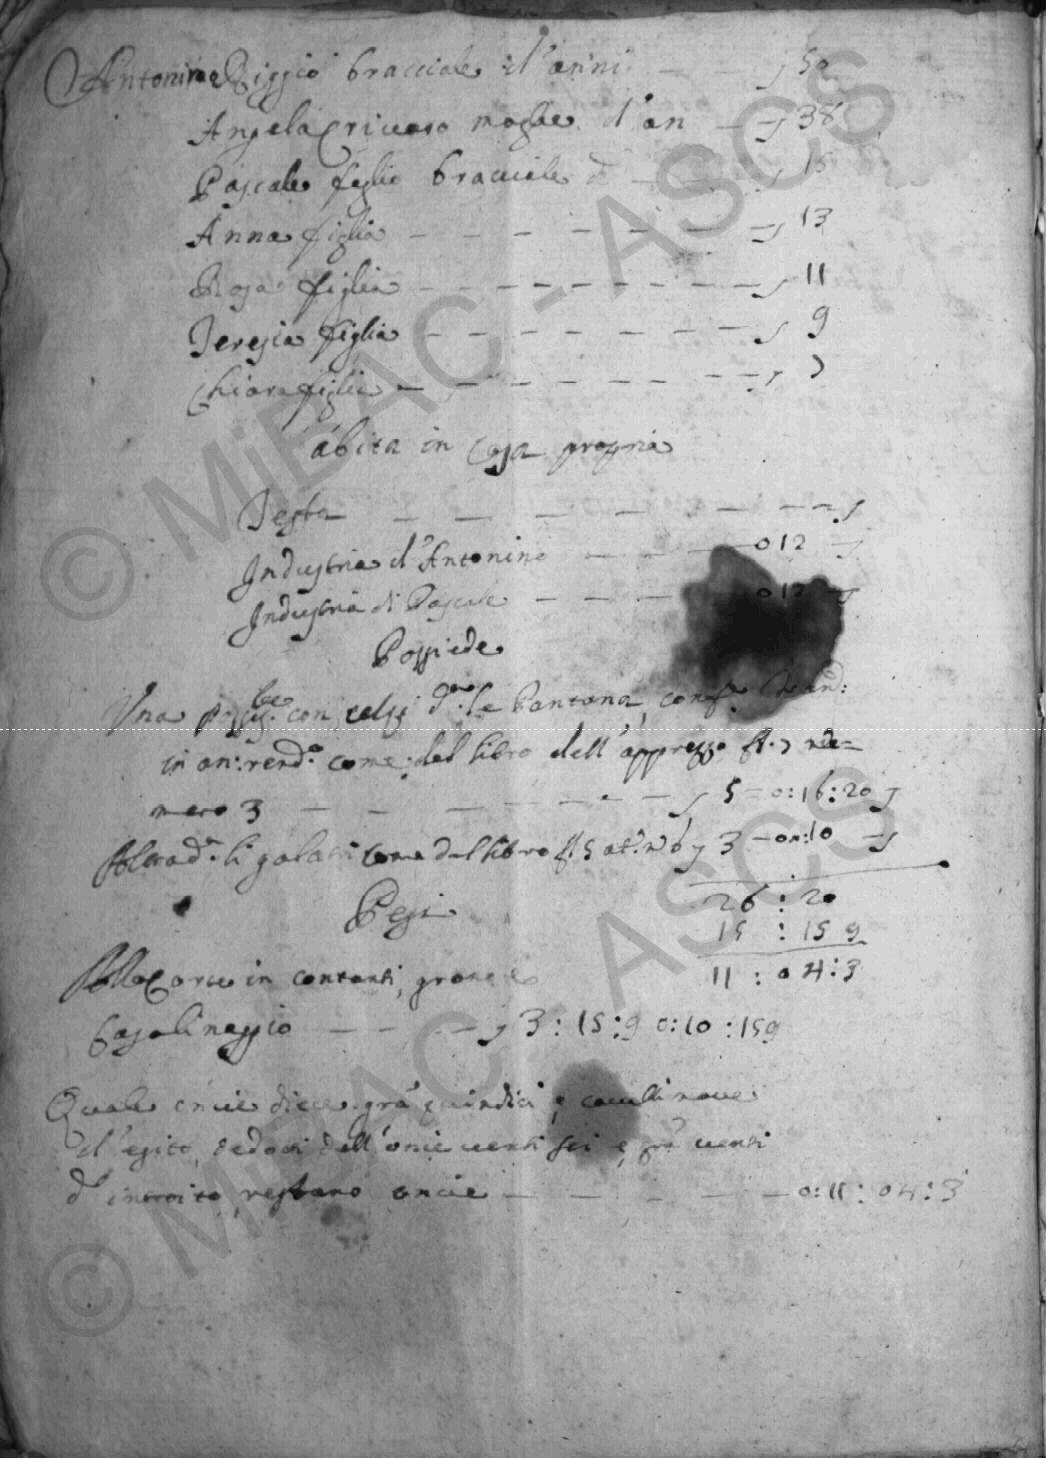 Antonino Riggio bracciale d'anni — — 50
Angela Crivaro moglie d'an — — 38
Pascale figlio bracciale d — — — 15
Anna figlia — — — — — — — 13
Rosa figlia — — — — — — — 11
Teresia figlia — — — — — — — 9
Chiara figlia — — — — — — — 7
abita in casa propria
Testa — — — — — — —
Industria d'Antonino — — — 012
Industria di Pascale — — — 012
Possiede
Una poss. con celsi d.ta le Pantana, conf.
in an: rend.a come del libro dell'apprezzo fl. 7 nu=
mero 3 — — — — — — 5 = 0:16:20
come del libro fl. 5 at. n. 6 3 — 0n:10
26 : 20
Pesi
15 : 15 9
11 : 04:3
Alla Corte in contanti, grana e
Casalinaggio — — — 3 : 15 : 9 0:10 : 159
Quale oncie diece gra quindici e cavalli nove
d'esito, dedotti dell'oncie venti sei e gra venti
d'introito, restano oncie — — — — — 0:11 : 04 : 3
© MiBAC - ASCS
© MiBAC - ASCS